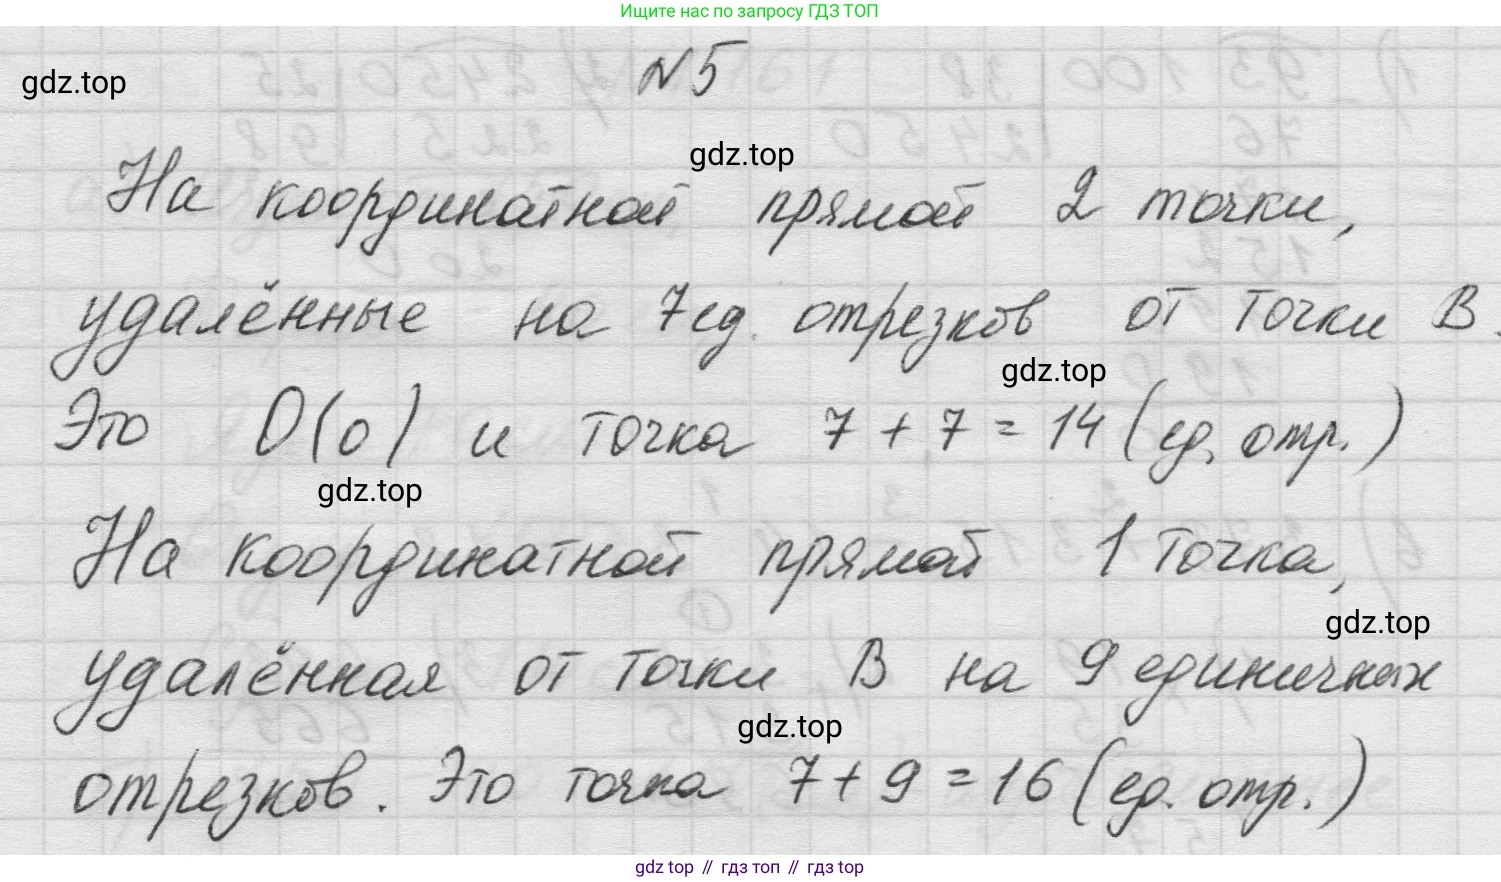 Ищите нас по запросу ГДЗ ТОП
№5
gdz.top
gdz.top
На координатной прямой 2 точки,
удалённые на 7 ед. отрезков от точки B.
gdz.top
Это O(0) и точка 7 + 7 = 14 (ед. отр.)
gdz.top
На координатной прямой 1 точка,
gdz.top
удалённая от точки B на 9 единичных
gdz.top
отрезков. Это точка 7 + 9 = 16 (ед. отр.)
gdz.top // гдз топ // гдз.top